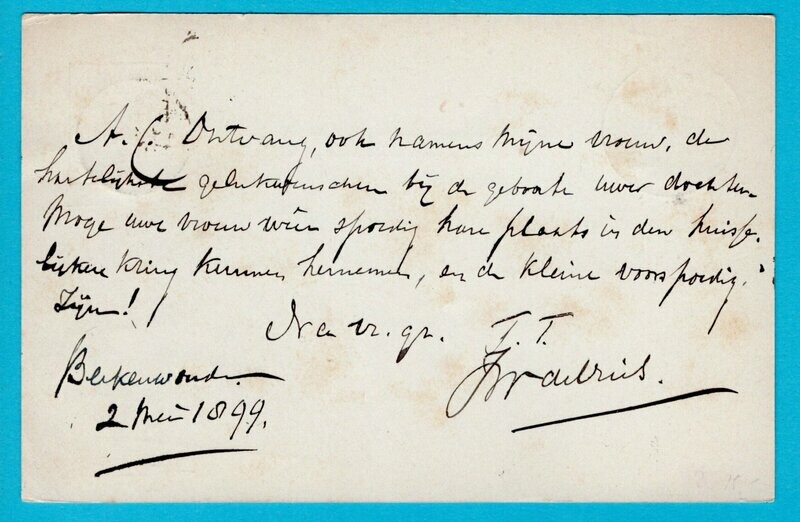 A. C. Ontvang, ook namens mijne vrouw, de
hartelijkste gelukwenschen bij de geboorte uwer dochter.
Moge uwe vrouw weer spoedig hare plaats in den huisse-
lijken kring kunnen hernemen, en de kleine voorspoedig
zijn!
Na vr. gr. T. T.
Berkenwoude
2 Mei 1899.